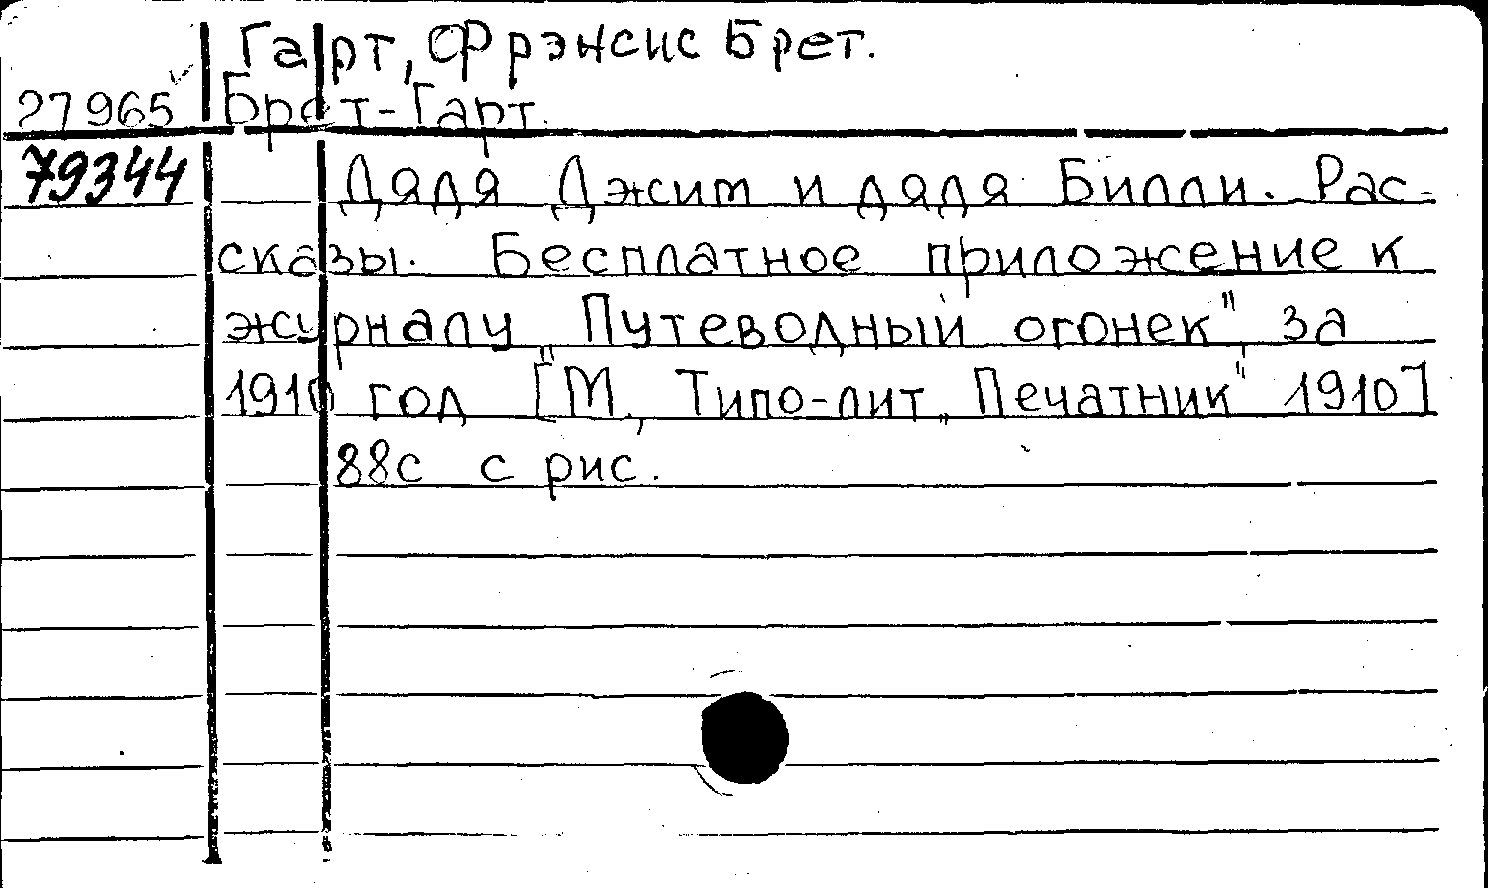 Гарт, Фрэнсис Брет.
27965 Брет-Гарт.
79344 Дядя Джим и дядя Билли. Рас-
сказы. Бесплатное приложение к
журналу „Путеводный огонек", за
1910 год [М, Типо-лит „Печатник" 1910]
88с с рис.